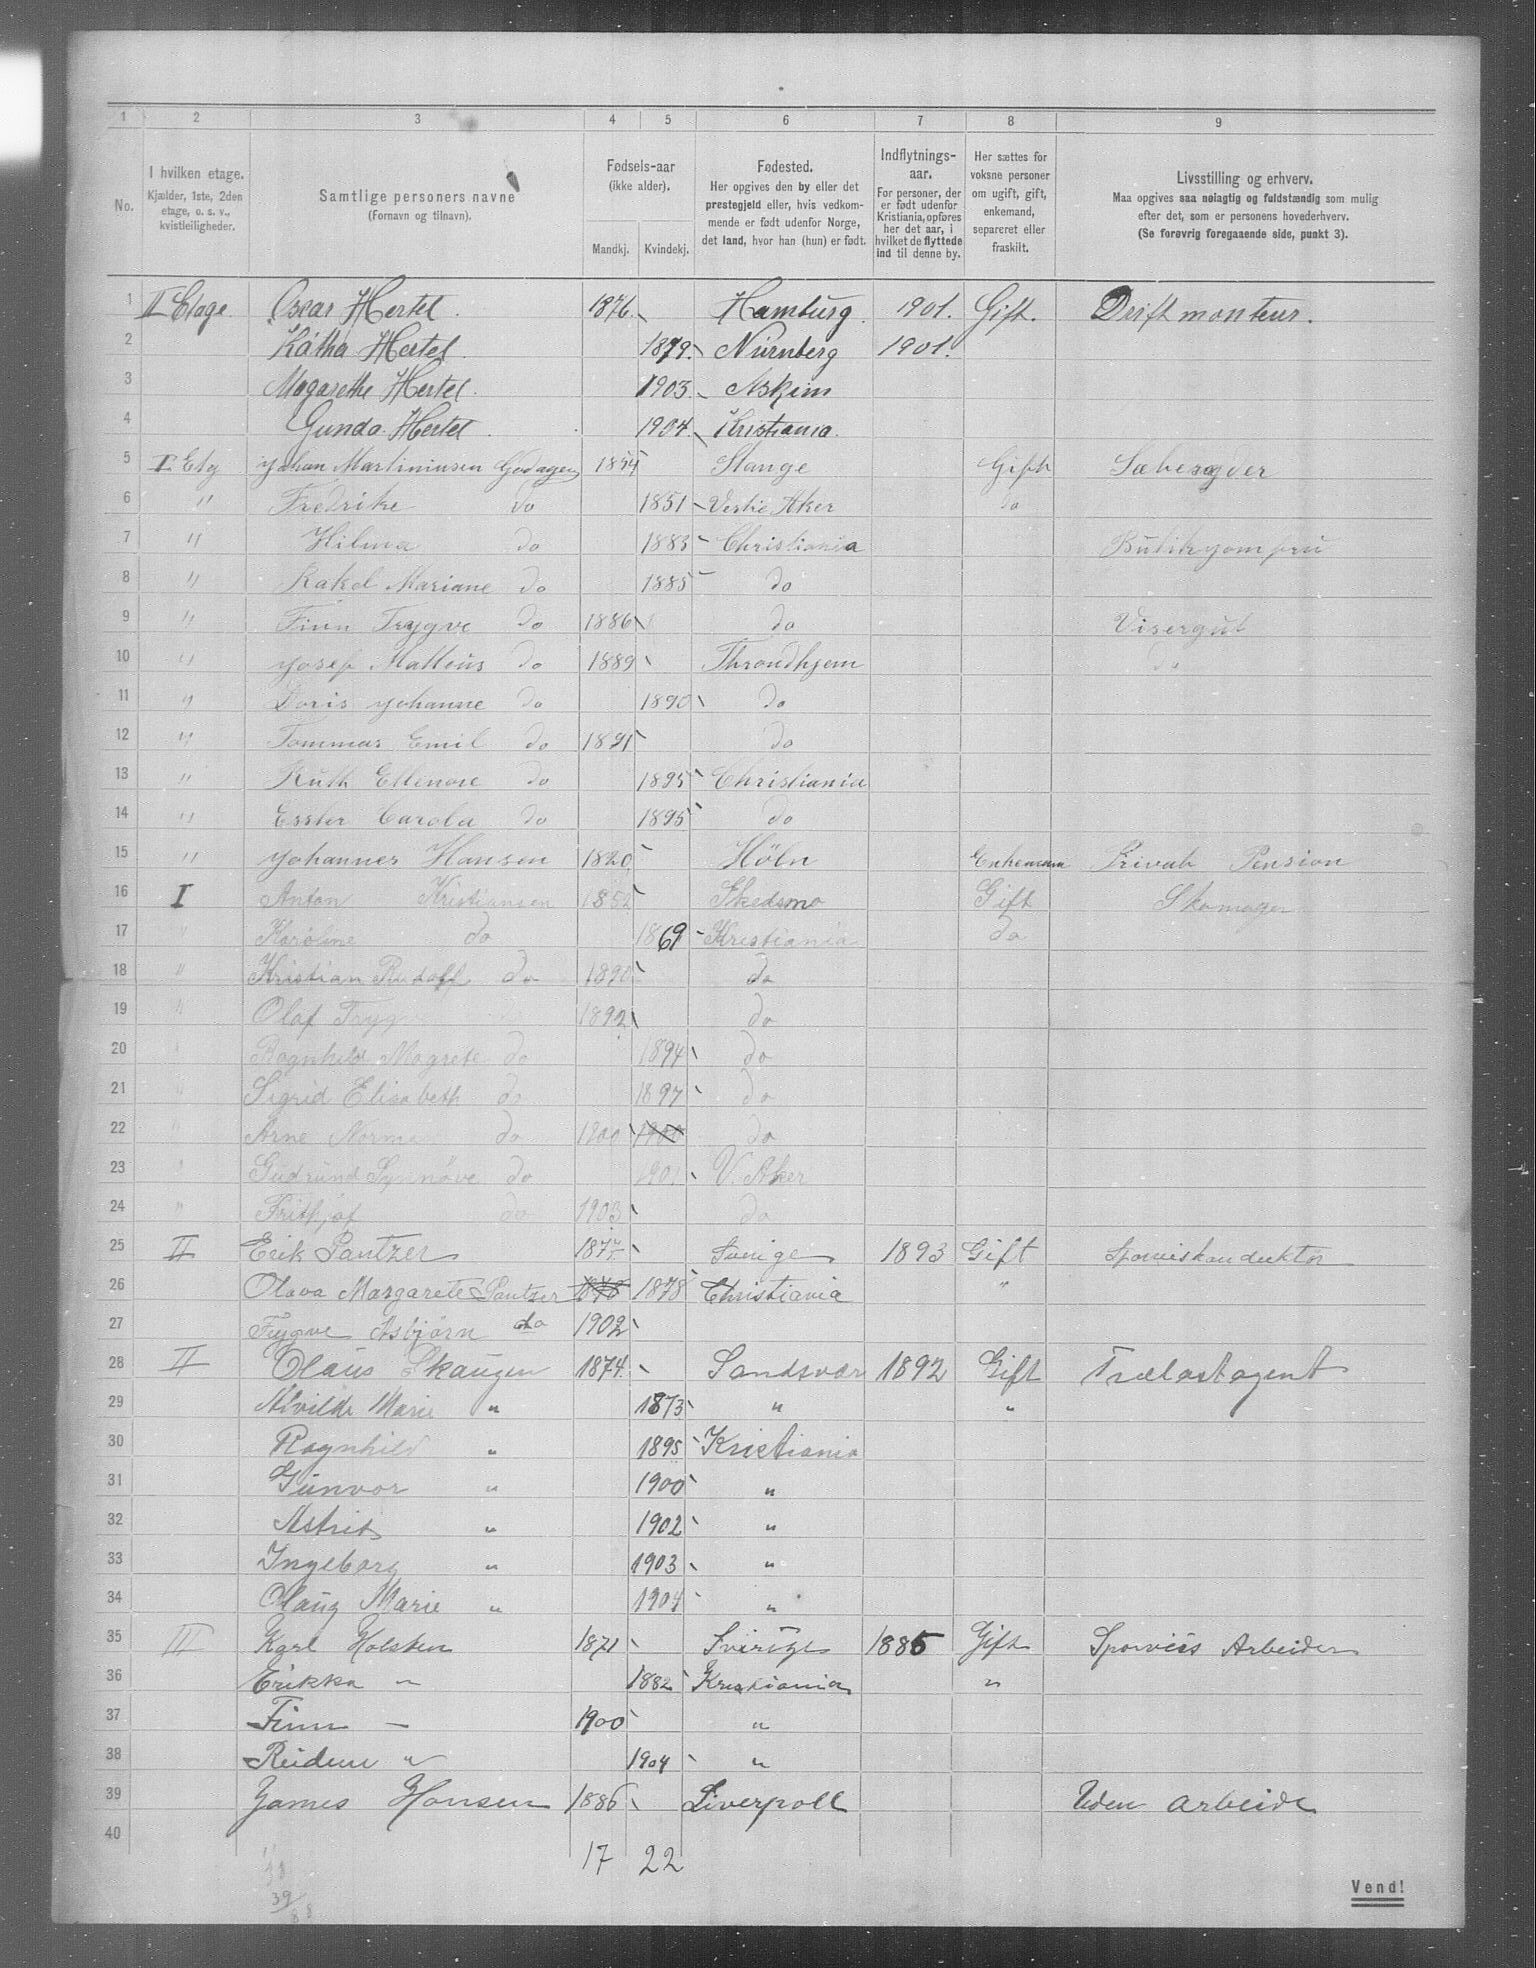 1 2 3 4 5 6 7 8 9
No.
I hvilken etage.
Kjælder, 1ste, 2den
etage, o. s. v.,
kvistleiligheder.
Samtlige personers navne
(Fornavn og tilnavn).
Fødsels-aar
(ikke alder).
Mandkj. Kvindekj.
Fødested.
Her opgives den by eller det
prestegjeld eller, hvis vedkom-
mende er født udenfor Norge,
det land, hvor han (hun) er født.
Indflytnings-
aar.
For personer, der
er født udenfor
Kristiania, opføres
her det aar, i
hvilket de flyttede
ind til denne by.
Her sættes for
voksne personer
om ugift, gift,
enkemand,
separeret eller
fraskilt.
Livsstilling og erhverv.
Maa opgives saa nøiagtig og fuldstændig som mulig
efter det, som er personens hovederhverv.
(Se forøvrig foregaaende side, punkt 3).
1 II Etage Oscar Hertel 1876 Hamburg 901. Gift. Driftmonteur.
2 Kätha Hertel 1879 Nürnberg 1901.
3 Magarethe Hertel 1903 Askim
4 Gunda Hertel 1904 Kristiania
5 I Etg Johan Martiniusen Godager 1854 Stange Gift
6 " Fredrike do 1851 Vestre Aker do
7 " Hilma do 1883 Christiania Butikjomfru
8 " Rakel Mariane do 1885 do
9 " Finn Trygve do 1886 do Visergut
10 " Josef Matteus do 1889 Throndhjem do
11 " Doris Johanne do 1890 do
12 " Tommas Emil do 1891 do
13 " Ruth Ellenore do 1895 Christiania
14 " Esster Carola do 1895 do
15 " Johannes Hansen 1820 Höln Enkemann Privat Pension
16 I Anton Kristiansen 1852 Skedsmo Gift Skomager
17 " Karoline do 1869 Kristiania do
18 " Kristian Rudolf do 1890 do
19 " Olaf Tryg 1892 do
20 " Ragnhild Magrete do 1894 do
21 " Sigrid Elisabeth do 1897 do
22 " Arne Norma do 1900 1900 do
23 " Gudrund Synnöve do 1901 V. Aker
24 " Frithjof do 1903 do
25 II Erik Pantzer 187 Sverige 1893 Gift Sporveiskonduktør
26 Olava Margarete Pantzer 1878 1878 Christiania "
27 Trygve Asbjørn do 1902
28 II Olaus Skaugen 1874 Sandsvær 1892 Gift Trælastagent
29 Alvilde Marie " 1873 " "
30 Ragnhild " 1895 Kristiania
31 Gunvor " 1900 "
32 Astrid " 1902 "
33 Ingeborg " 1903 "
34 Olaug Marie " 1904 "
35 III Karl Holsten 1871 Sverige 1885 Gift Sporveis Arbeider
36 Erikka " 1882 Kristiania "
37 Finn — 1900 "
38 Reidun " 1904 "
39 James Hansen 1886 Liverpoll Uden arbeide
40
17 22
39
Vend!